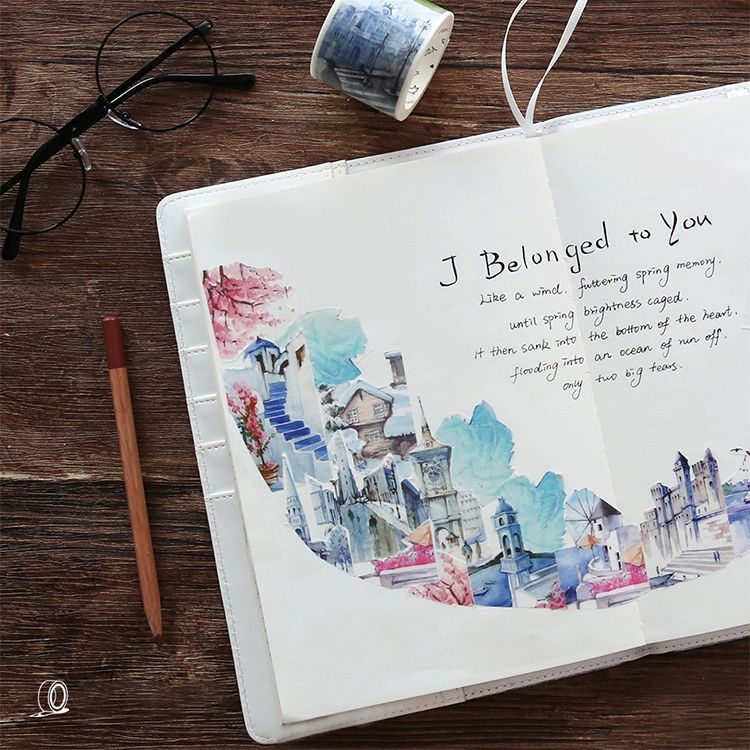 I Belonged to You
Like a wind, futtering spring memory.
until spring brightness caged.
it then sank into the bottom of the heart,
flooding into an ocean of run off.
only two big tears.